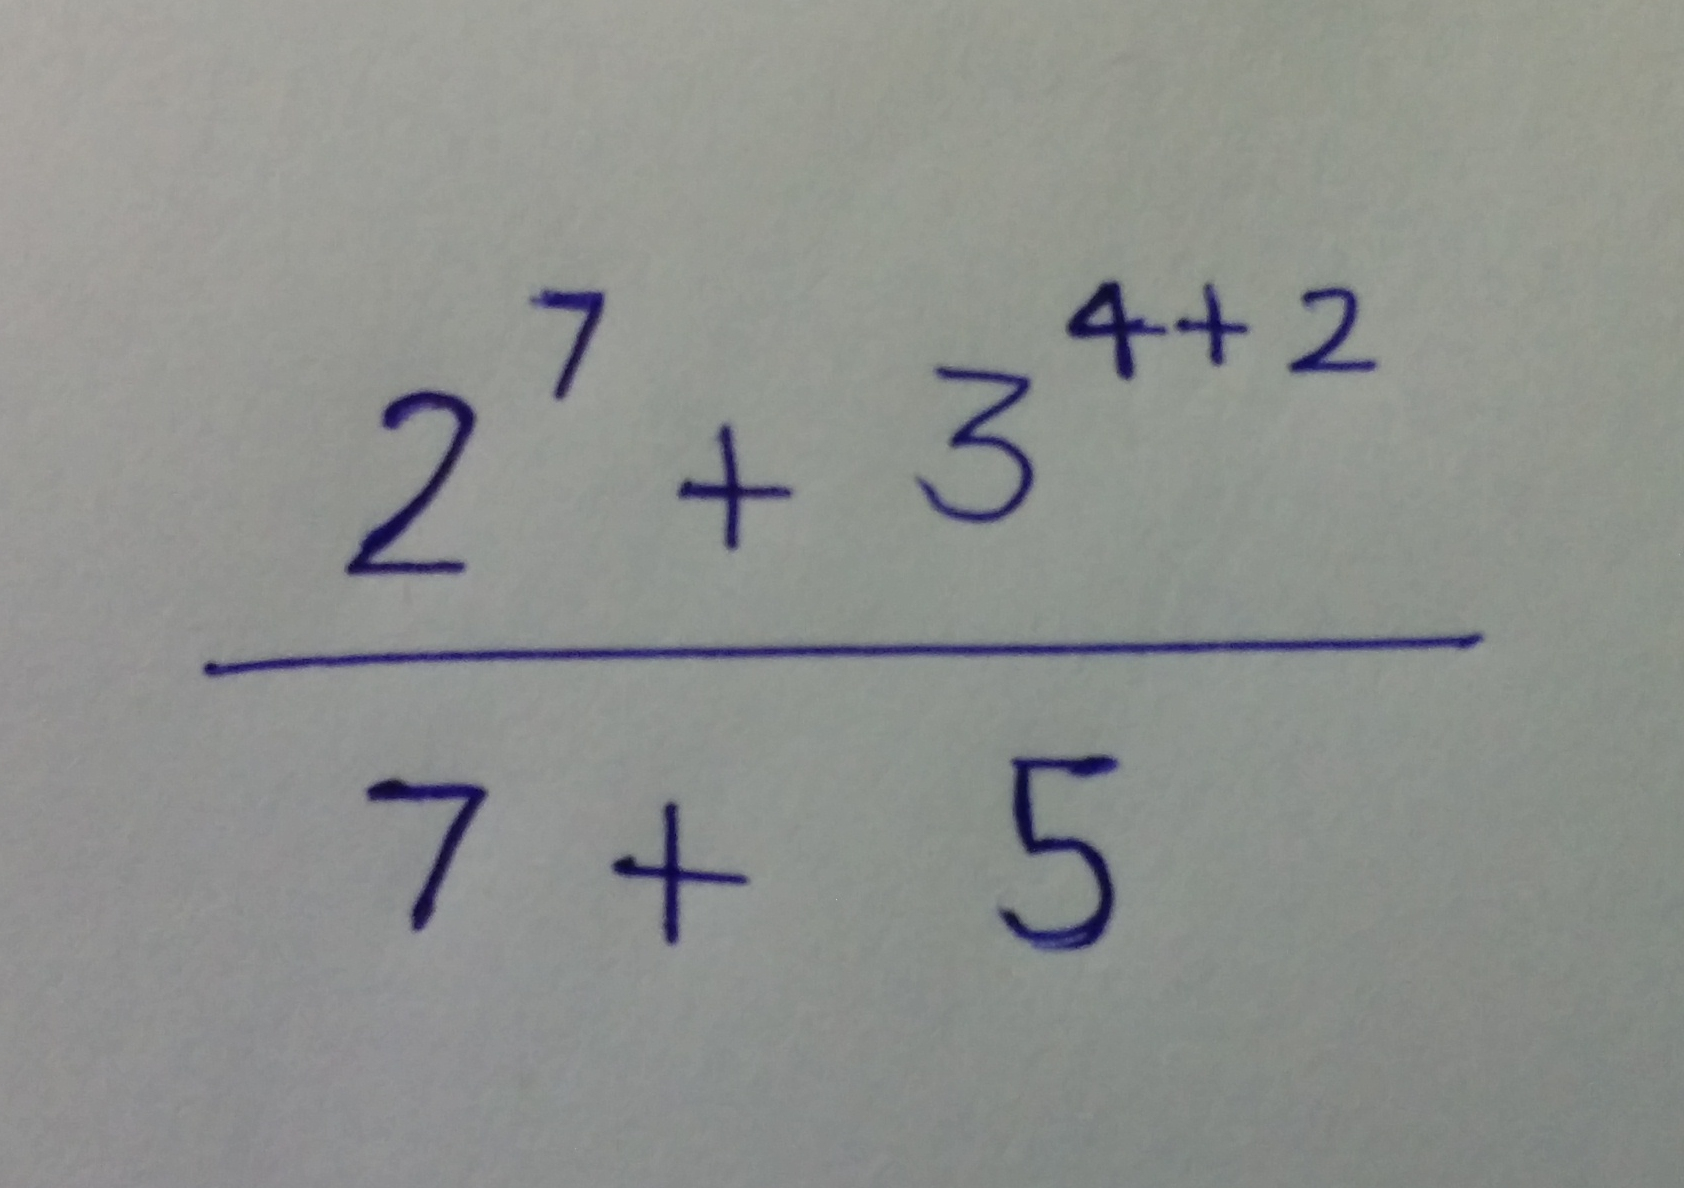 2^7 + 3^{4+2}
7 + 5